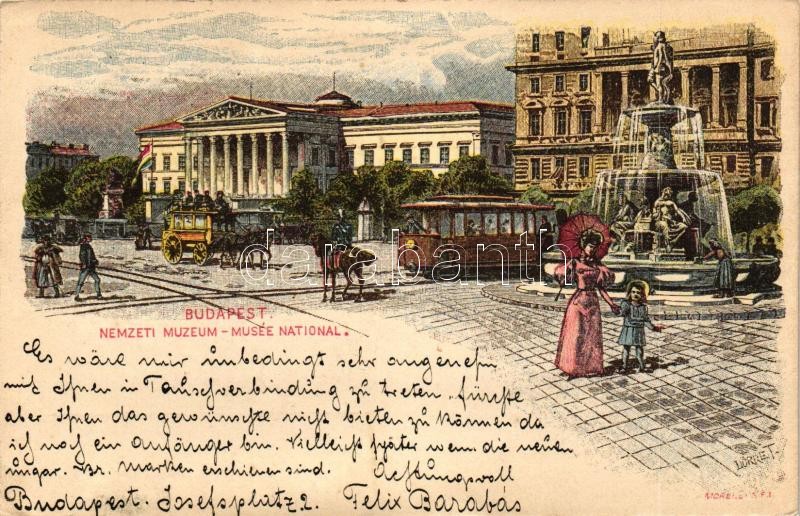 BUDAPEST.
NEMZETI MUZEUM - MUSÉE NATIONAL.
darabanth
Es wäre mir unbedingt sehr angenehm
mit Ihnen in Tauschverbindung zu treten, fürchte
aber Ihnen das gewünschte nicht bieten zu können da
ich noch ein Anfänger bin. Vielleicht später wenn die neuen
ungar. Br. Marken erschienen sind. Achtungsvoll
Budapest. Josefsplatz 2. Felix Barabás
DÖRRE T.